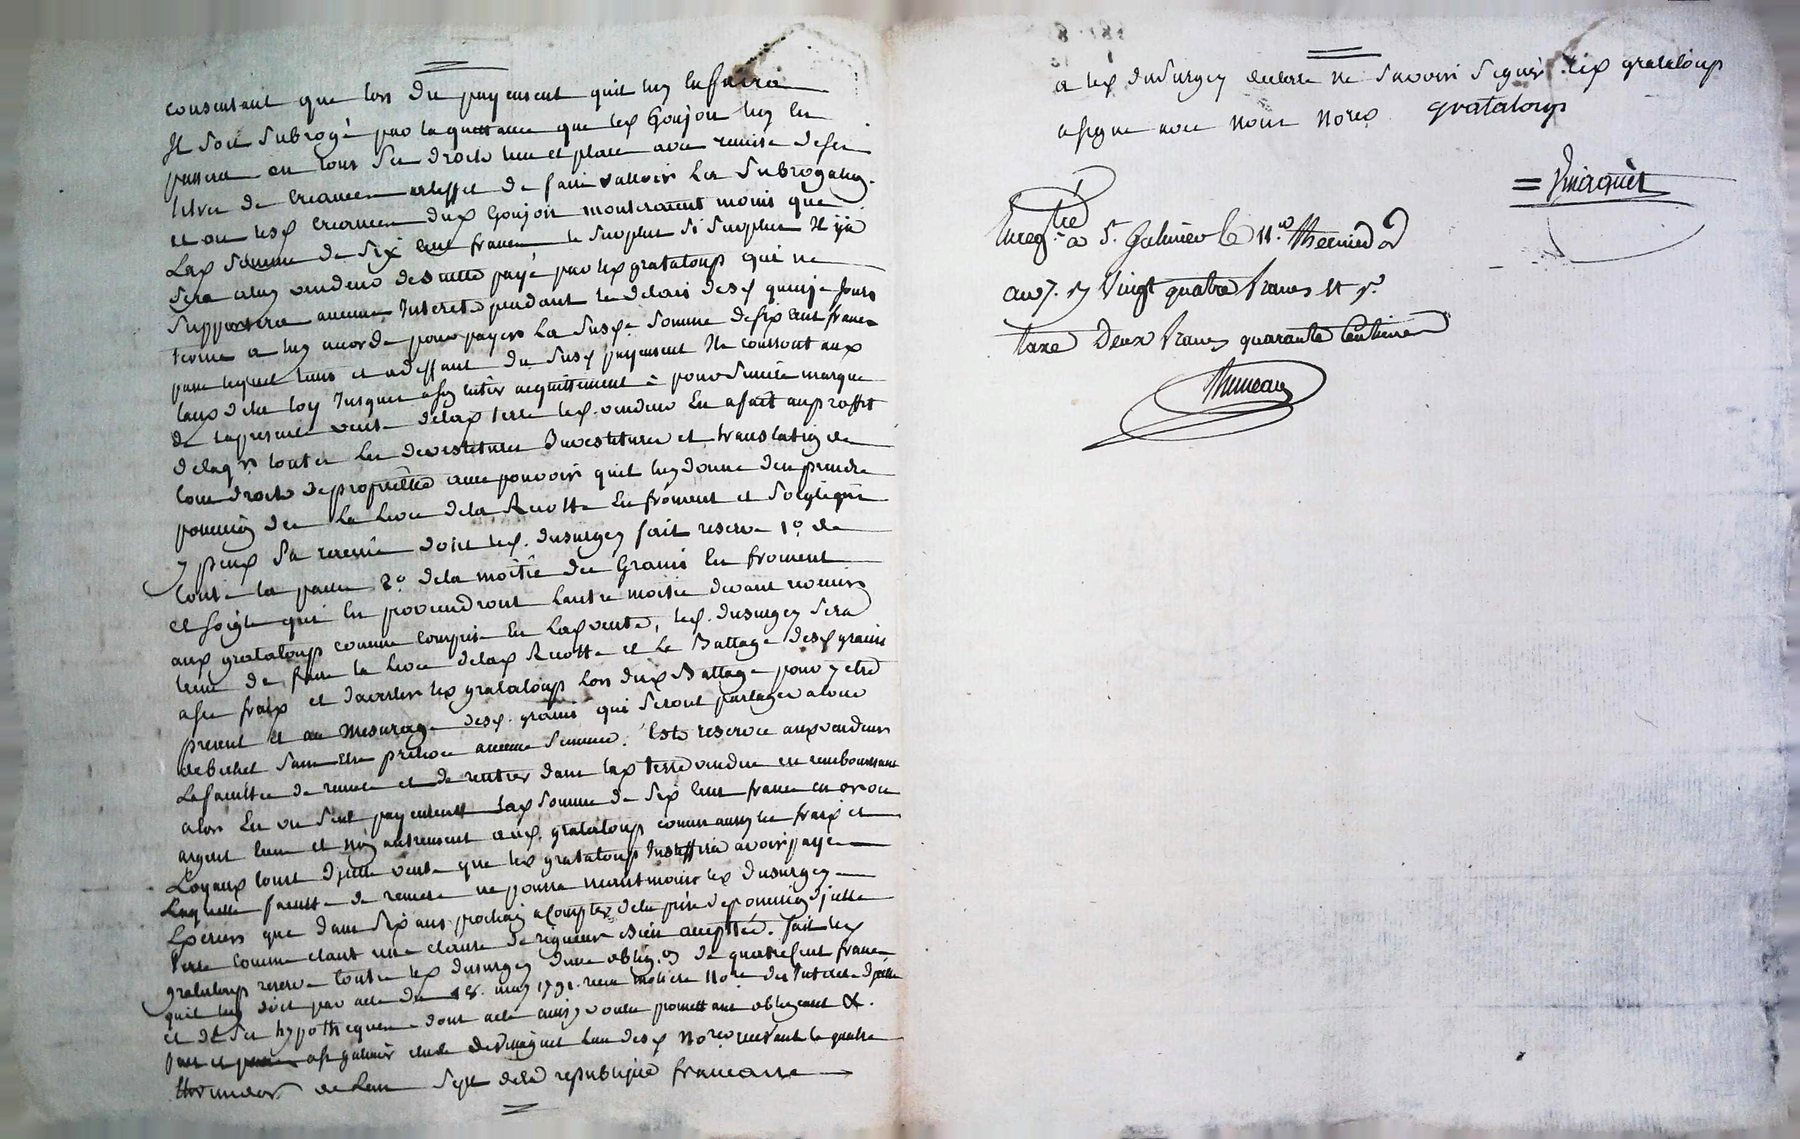 consentant que lors du payement quil luy en faira
Il soit subrogé par la quittance que led Goujon luy en
passera en tous ses droits lieu et place avec remise de ses
titres de creances a leffet de faire valloir la subrogation.
et ou lesd creances dud Goujon monteraient moins que
lad somme de six cent francs le surplus si surplus Il y a
sera aud vendeur de suitte payé par led grataloup qui ne
supportera aucuns Interets pendant le delais desd quinze jours
terme a luy accordé pour payer la susde somme de six cent francs
passé lequel tems et a deffaut du susd payement Ils courront aux
taux de la loy jusques a son entier acquittement
de la presente vente de lad terre led. vendeur en a fait au proffit
de lacqr toutes les devestitures Investitures et translation de
tous droits de propriété avec pouvoir quil luy donne den prendre
possession des la levée de la Recolte en froment et soigle qui
y peux sa reservé dont led. dusurgey fait reserve 1o. de
toute la paille 2o. de la moitié des Grains en froment
et soigle qui en proviendront lautre moitié devant revenir
aud grataloup comme comprise en lad vente, led. dusurgey sera
tenu de faire la levée de lad Recolte et le Battage desd grains
a ses fraix et davertir led grataloup lors dud Battage pour y etre
present et au mesurage desd. grains qui seront partagés
de bichet sans etre prélevé aucune semence. Est reservée aux vendeurs
la faculté de remere et de rentrer dans lad terre vendue en remboursant
alors en un seul payement lad somme de six cent francs en or ou
argent bien et non autrement aud. grataloup comm aussy les fraix et
Loyaux couts dycelle vente que led grataloup Justiffira avoir payé
laquelle faculté de remere ne pourra neantmoins led dusurgey
Exercer que dans six ans prochain a compter de la prise de possession dycelle
terre comme etant une clause de rigueur Bien acceptée. fait led
grataloup reserve contre led dusurgey dune oblig.on de quatre cent francs
quil luy doit par acte du 18. may 1791. recu nore des Interets dycelle
et de ses hypotheques dont acte ainsy voulu promettant obligeant &.
fait et passé a st galmier etude de vinagnet lun desd nores recevant le quatre
thermidor de lan sept de la republique francaise
a led dusurgey declaré ne savoir signer led grataloup
a signé avec nous nores. grataloup
Enregtré a S. Galmier le 11.e thermidor
an 7. R Vingt quatre francs
taxe Deux francs quarante Centimes